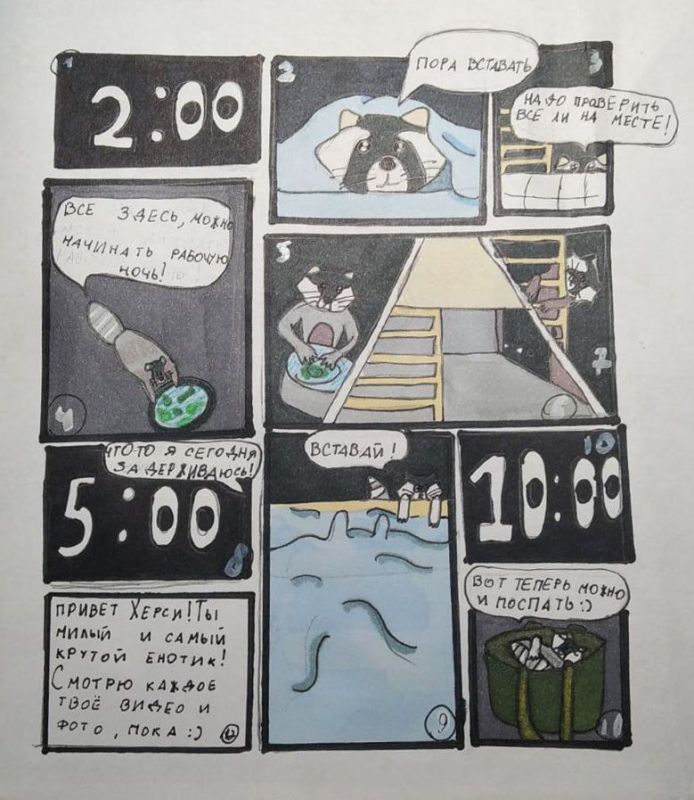 1
2:00
2
ПОРА ВСТАВАТЬ
3
НАДО ПРОВЕРИТЬ
ВСЕ ЛИ НА МЕСТЕ!
ВСЕ ЗДЕСЬ, МОЖНО
НАЧИНАТЬ РАБОЧУЮ
НОЧЬ!
4
5
7
ЧТО-ТО Я СЕГОДНЯ
ЗАДЕРЖИВАЮСЬ!
5:00
8
ВСТАВАЙ!
9
10
10:00
ВОТ ТЕПЕРЬ МОЖНО
И ПОСПАТЬ:)
11
ПРИВЕТ ХЕРСИ! ТЫ
МИЛЫЙ И САМЫЙ
КРУТОЙ ЕНОТИК!
СМОТРЮ КАЖДОЕ
ТВОЁ ВИДЕО И
ФОТО, ПОКА :)
12